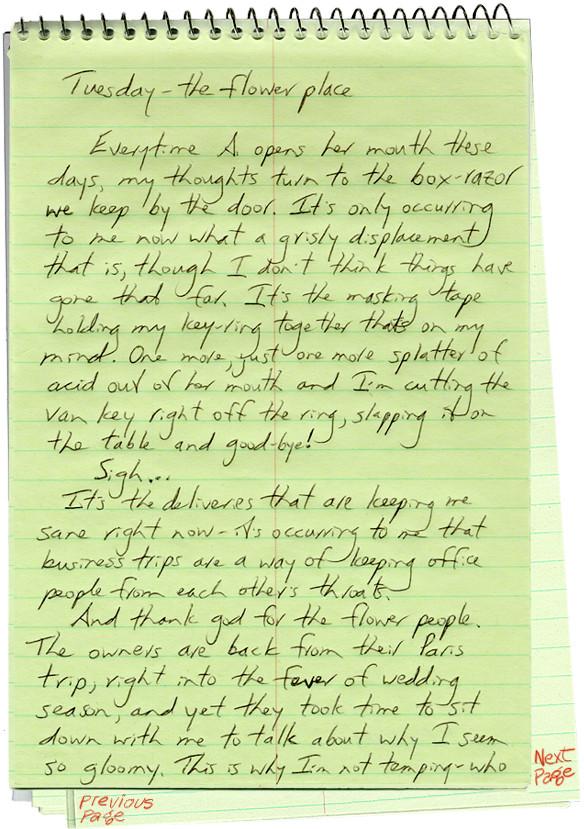 Tuesday - the flower place
Everytime A. opens her mouth these
days, my thoughts turn to the box-razor
we keep by the door. It's only occurring
to me now what a grisly displacement
that is, though I don't think things have
gone that far. It's the masking tape
holding my key-ring together thats on my
mind. One more, just one more splatter of
acid out of her mouth and I'm cutting the
van key right off the ring, slapping it on
the table and good-bye!
Sigh...
It's the deliveries that are keeping me
sane right now - it's occurring to me that
business trips are a way of keeping office
people from each other's throats.
And thank god for the flower people.
The owners are back from their Paris
trip, right into the fever of wedding
season, and yet they took time to sit
down with me to talk about why I seem
so gloomy. This is why I'm not temping - who
Next
Page
Previous
Page